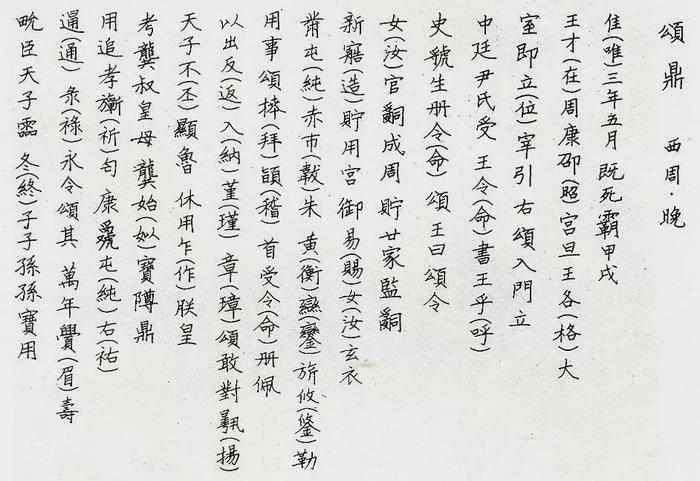 頌鼎 西周·晚
隹(唯)三年五月既死霸甲戌
王才(在)周康卲(昭)宮旦王各(格)大
室即立(位)宰引右頌入門立
中廷尹氏受王令(命)書王乎(呼)
史虢生册令(命)頌王曰頌令
女(汝)官嗣成周貯廿家監嗣
新寤(造)貯用宮御易(賜)女(汝)玄衣
黹屯(純)赤巿(韍)朱黃(衡)鑾旂攸(鋚)勒
用事頌捧(拜)䭫(稽)首受令(命)册佩
以出反(返)入(納)堇(瑾)章(璋)頌敢對揚(揚)
天子不(丕)顯魯休用乍(作)朕皇
考龔叔皇母龔始(姒)寶䵼鼎
用追孝旂(祈)匄康屯(純)右(祐)
通(通)彔(祿)永令頌其萬年眉(眉)壽
畯臣天子霝冬(終)子子孫孫寶用